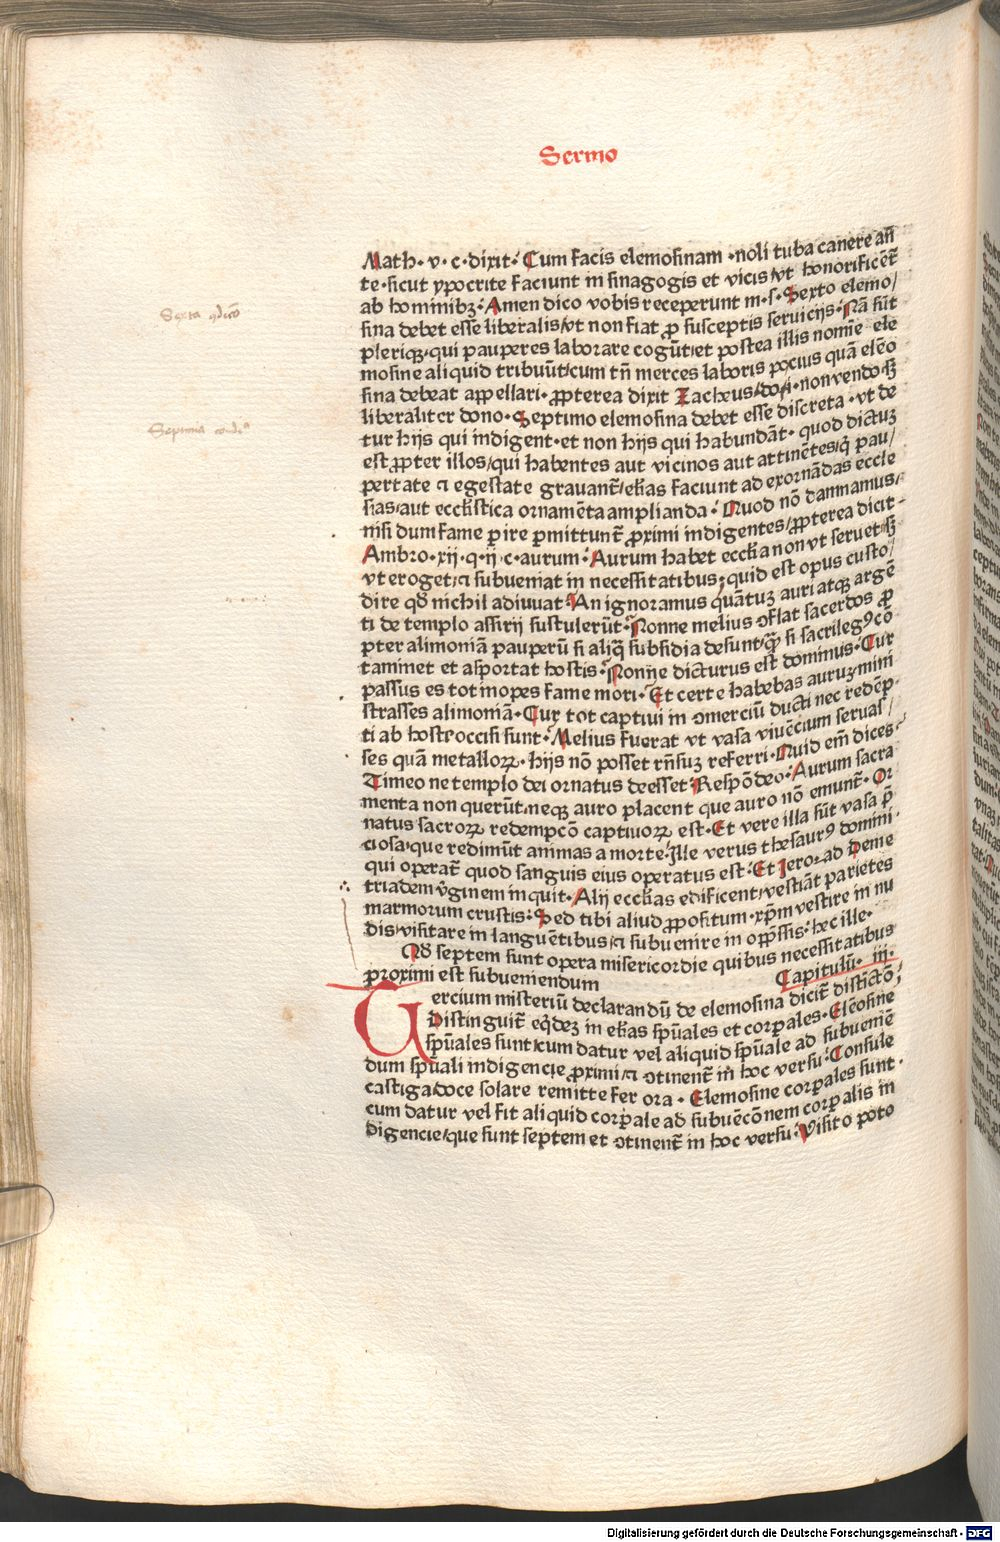 Sermo
Math. v. c. dixit. Cum facis elemosinam. noli tuba canere an̄
te. sicut ypocrite faciunt in sinagogis et vicis/vt honorificēt̄
ab hominibꝫ. Amen dico vobis receperunt m. s. Sexto elemo/
sina debet esse liberalis/vt non fiat ꝓ susceptis seruicijs. Nā sūt
pleriqꝫ qui pauperes laborare cogūt/et postea illis nomīe ele
mosine aliquid tribuūt/cum tn̄ merces laboris pocius quā elēo
sina debeat appellari. ꝓpterea dixit Zacheus/do/i. non vendo sꝫ
liberaliter dono. Septimo elemosina debet esse discreta. vt de
tur hijs qui indigent. et non hijs qui habundāt. quod dictuꝫ
est ꝓpter illos/qui habentes aut vicinos aut attinētes/q̄ pau/
pertate ⁊ egestate grauant̄/ecl̄ias faciunt ad exornādas eccle
sias/aut eccl̄istica ornamēta amplianda. Quod nō damnamus/
nisi dum fame ꝑire ꝑmittunt̄ ꝓximi indigentes/ꝓpterea dicit
Ambro. xij. q. ij. c. aurum. Aurum habet eccl̄ia non vt seruet/sꝫ
vt eroget/⁊ subueniat in necessitatibus. quid est opus custo/
dire qd̄ nichil adiuuat. An ignoramus quātuꝫ auri atqꝫ argē
ti de templo assirij sustulerūt. Nonne melius ꝯflat sacerdos ꝓ
pter alimoniā pauperū si aliq̄ subsidia desunt/qꝫ̄ si sacrilegꝰ cō
taminet et asportat hostis. Nonne dicturus est dominus. Cur
passus es tot inopes fame mori. Et certe habebas auruꝫ mini
strasses alimoniā. Cur tot captiui in ꝯmerciū ducti nec redēp
ti ab hoste occisi sunt. Melius fuerat vt vasa viuēcium seruas/
ses quā metalloꝝ. hijs nō posset rn̄suꝫ referri. Quid em̄ dices
Timeo ne templo dei ornatus deesset. Respōdeo. Aurum sacra
menta non querūt. neqꝫ auro placent que auro nō emunt̄. Or
natus sacroꝝ redempcō captiuoꝝ est. Et vere illa sūt vasa p̄
ciosa/que redimūt animas a morte. Ille verus thesaurꝰ domini.
qui operat̄ quod sanguis eius operatus est. Et Iero. ad Deme
triadem v̄ginem inquit. Alij eccl̄ias edificent/vestiāt parietes
marmorum crustis. Sed tibi aliud ꝓpositum. xp̄m vestire in nu
dis/visitare in languētibus/⁊ subuenire in opp̄ssis. hec ille.
Qd̄ septem sunt opera misericordie quibus necessitatibus
proximi est subueniendum Capitulū. iij.
Tercium misteriū declarandū de elemosina dicit̄ distictō/
Distinguit̄ eq̄deꝫ in ecl̄ias sp̄uales et corꝑales. Elēosine
sp̄uales sunt/cum datur vel aliquid sp̄uale ad subueniē
dum sp̄uali indigencie ꝓximi/⁊ ꝯtinent̄ in hoc versu. Consule
castiga doce solare remitte fer ora. Elemosine corꝑales sunt.
cum datur vel fit aliquid corꝑale ad subuēcōnem corꝑalis in
digencie/que sunt septem et ꝯtinent̄ in hoc versu. Visito poto
Digitalisierung gefördert durch die Deutsche Forschungsgemeinschaft - DFG